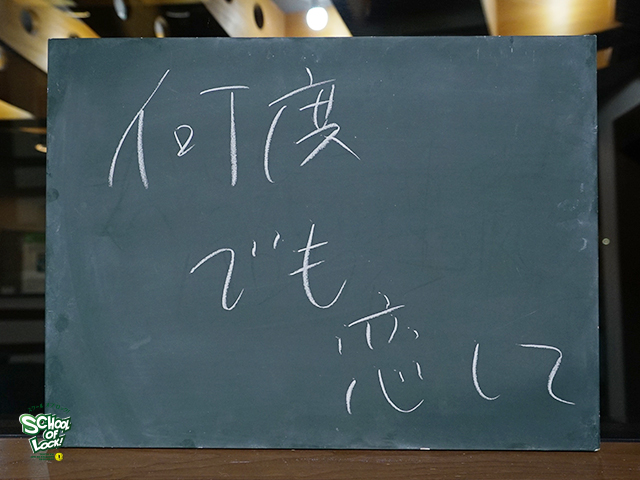 何度
でも
恋して
SCHOOL
OF
LOCK!